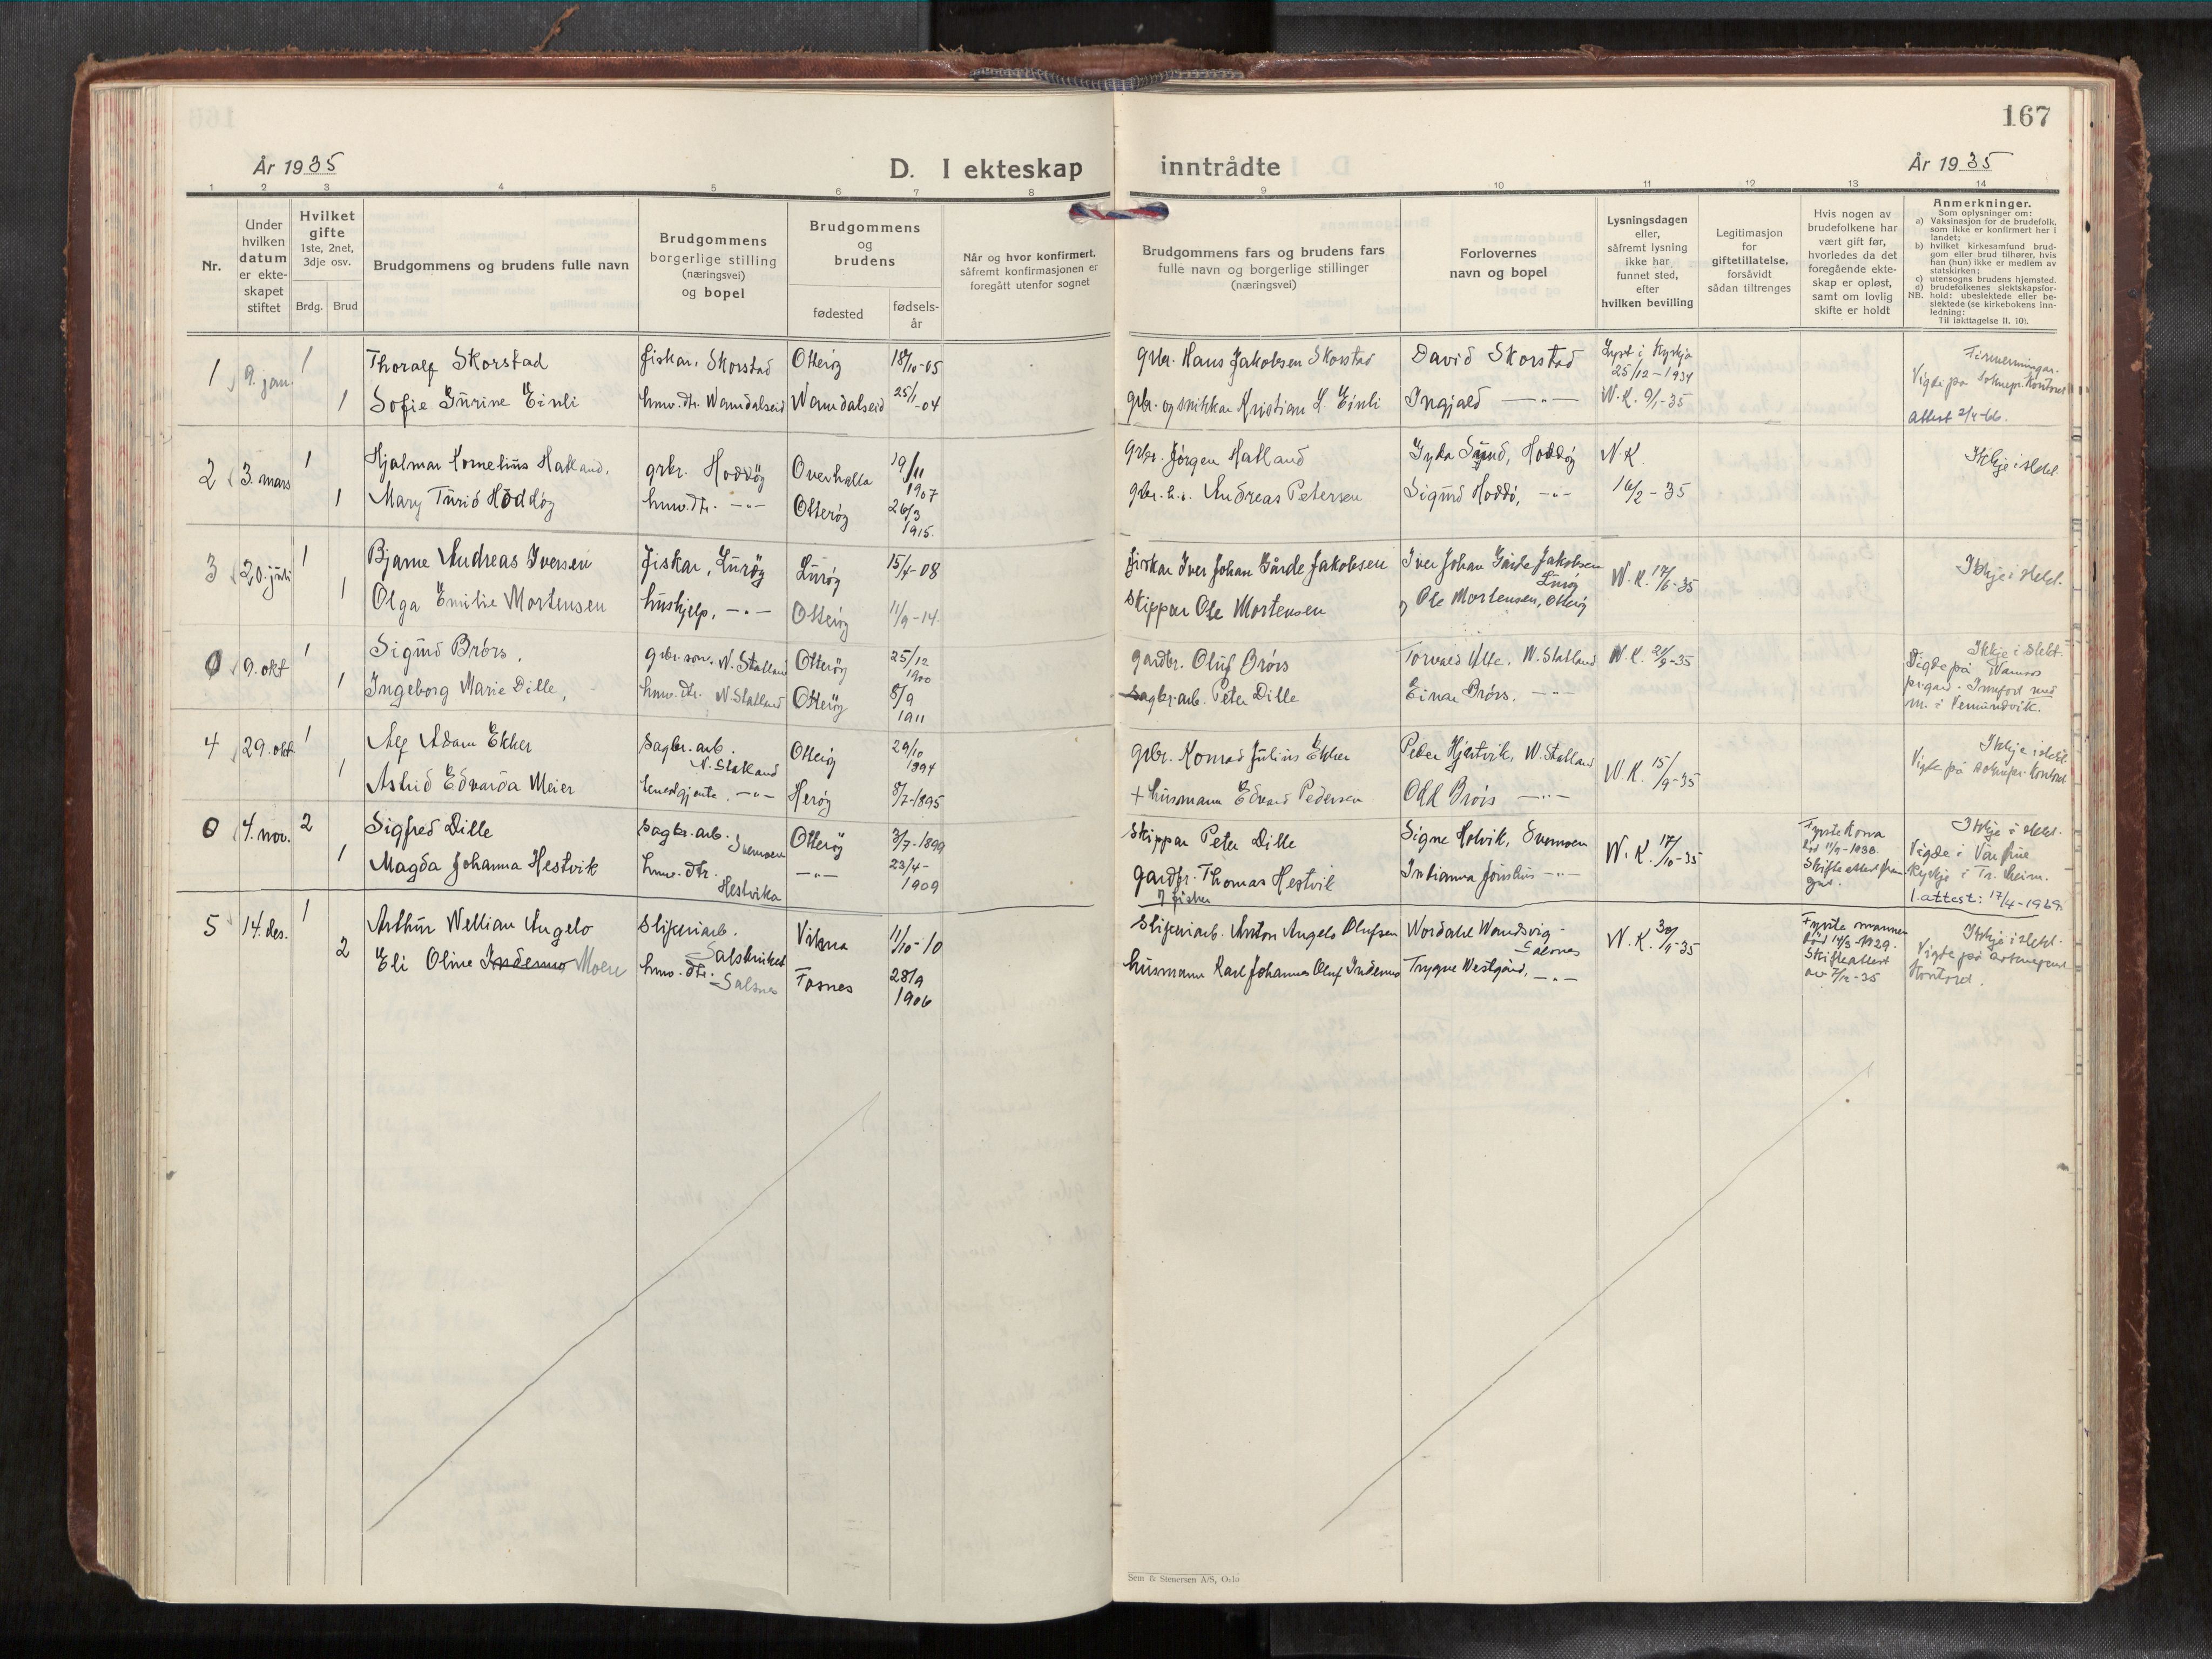 167
År 1935
D. I ekteskap inntrådte
År 1935
1 2 3 4 5 6 7 8 9 10 11 12 13 14
Nr.
Under
hvilken
datum
er ekte-
skapet
stiftet
Hvilket
gifte
1ste, 2net,
3dje osv.
Brdg. Brud
Brudgommens og brudens fulle navn
Brudgommens
borgerlige stilling
(næringsvei)
og bopel
Brudgommens
og
brudens
fødested
fødsels-
år
Når og hvor konfirmert,
såfremt konfirmasjonen er
foregått utenfor sognet
Brudgommens fars og brudens fars
fulle navn og borgerlige stillinger
(næringsvei)
Forlovernes
navn og bopel
Lysningsdagen
eller,
såfremt lysning
ikke har
funnet sted,
efter
hvilken bevilling
Legitimasjon
for
giftetillatelse,
forsåvidt
sådan tiltrenges
Hvis nogen av
brudefolkene har
vært gift før,
hvorledes da det
foregående ekte-
skap er opløst,
samt om lovlig
skifte er holdt
Anmerkninger.
Som oplysninger om:
a) Vaksinasjon for de brudefolk,
som ikke er konfirmert her i
landet;
b) hvilket kirkesamfund brud-
gom eller brud tilhører, hvis
han (hun) ikke er medlem av
statskirken;
c) utensogns brudens hjemsted.
d) brudefolkenes slektskapsfor-
NB. hold: ubeslektede eller be-
slektede (se kirkebokens inn-
ledning:
Til iakttagelse II. 10).
1 9. jan. 1 Thoralf Skorstad fiskar, Skorstad Otterøy 18/10-05 grbr. Hans Jakobsen Skorstad David Skorstad Lyst i kyrkja
25/12-1934
1 Sofie Gurine Einli hmv. dtr. Namdalseid Namdalseid 25/1-04 gbr. og snikkar Kristian L. Einli Ingjald —"— N.K. 9/1-35 Vigde på sokнepr. kontoret
Attest 2/4-66.
2 3. mars 1 Hjalmar Kornelius Hatland. grbr. Hoddöy Overhalla 19/11
1907 grbr. Jørgen Hatland Hoddøy N.K. Ikkje i slekt
1 Mary Turid Hoddøy hmv. dtr. —"— Otterøy 26/3
1915. Andreas Petersen Sigurd Hoddø, —"— 16/2-35
3 20. juli 1 Bjarne Andreas Iversen fiskar, Lurøy Lurøy 15/4-08 fiskar Iver Johan Gårde Jakobsen Iver Johan Gårde Jakobsen
Lurøy N.K. 17/6-35 Ikkje i slekt.
1 Olga Emilie Mortensen hushjelp, —"— Otterøy 11/9-14. skippar Ole Mortensen Ole Mortensen, Otterøy
0 9. okt 1 Sigurd Brörs. grbr. son. N. Statland Otterøy 25/12
1900 gardbr. Oluf Brörs N. Statland N.K. 21/9-35 Ikkje i slekt.
1 Ingeborg Marie Dille, hmv. dtr. N. Statland Otterøy 8/9
1911 sagbr. arb. Peter Dille Einar Brörs. —"— Vigde på Namsos
prgard. Innført med
nr. i Vemundvik.
4 29. okt 1 Alf Adam Ekker sagbr. arb.
N. Statland Otterøy 29/10
1894 grbr. Konrad Julius Ekker Peder Hjertvik, N. Statland N.K. 15/9-35 Ikkje i slekt
1 Astrid Edvarda Meier tenestgjente, —"— Herøy 8/7-1895 + husmann Edvard Pedersen Odd Brörs —"— Vigde på soknepr. kontoret
0 4. nov. 2 Sigfred Dille sagbr. arb. Otterøy 3/7-1899 skippar Peter Dille N.K. 17/10-35 Fyrste kona
Ikkje i slekt.
1 Magda Johanna Hestvik hmv. dtr.
Hestvika —"— 23/4-
1909 gardbr. Thomas Hestvik
Skifteattest Vigde i Vår frue
kyrkje i Tr. heim.
1. attest: 17/4-1969
5 14. des. 1 Arthur Wellian Angelo sliperiarb.
Salsbruket Vikna 11/10-10 sliperiarb. Anton Angelo Olufsen Salsnes N.K. 30/9-35 Fyrste mannen
död 14/3-1929.
Skifteattest
av 7/12-35 Ikkje i slekt.
2 Eli Oline Indermo Moen hmv. dtr. Salsnes Fosnes 28/9
1906 husmann Karl Johannes Oluf Indermo Trygve Westgård, —"— Vigde på
kontoret.
Sem & Stenersen A/S, Oslo